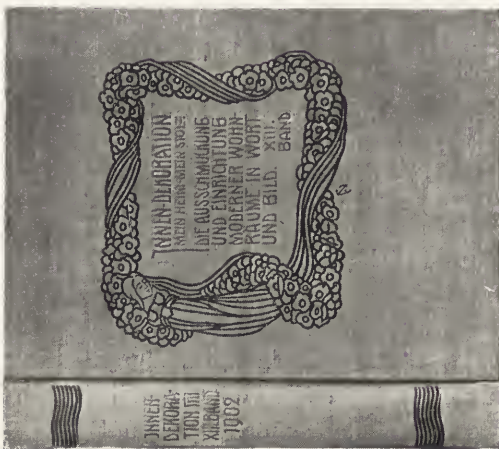 INNEN-DEKORATION
MEIN HEIM MEIN STOLZ
DIE AUSSCHMÜCKUNG
UND EINRICHTUNG
MODERNER WOHN-
RÄUME IN WORT
UND BILD. XIII.
BAND
INNEN-
DEKORA-
TION
XIII. BAND
1902